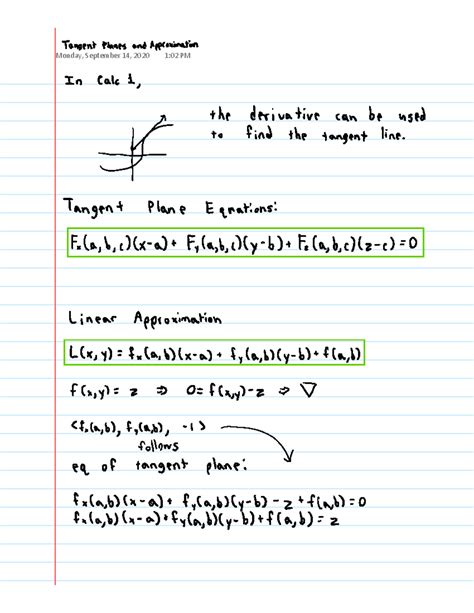 Tangent Planes and Approximation
Monday, September 14, 2020 1:02 PM
In Calc 1,
the derivative can be used
to find the tangent line.
Tangent Plane Equations:
Fₓ(a,b,c)(x-a) + Fᵧ(a,b,c)(y-b) + F_z(a,b,c)(z-c) = 0
Linear Approximation
L(x,y) = fₓ(a,b)(x-a) + fᵧ(a,b)(y-b) + f(a,b)
f(x,y) = z ⇒ 0 = f(x,y) - z ⇒ ∇
<fₓ(a,b), fᵧ(a,b), -1>
follows
eq of tangent plane:
fₓ(a,b)(x-a) + fᵧ(a,b)(y-b) - z + f(a,b) = 0
fₓ(a,b)(x-a) + fᵧ(a,b)(y-b) + f(a,b) = z